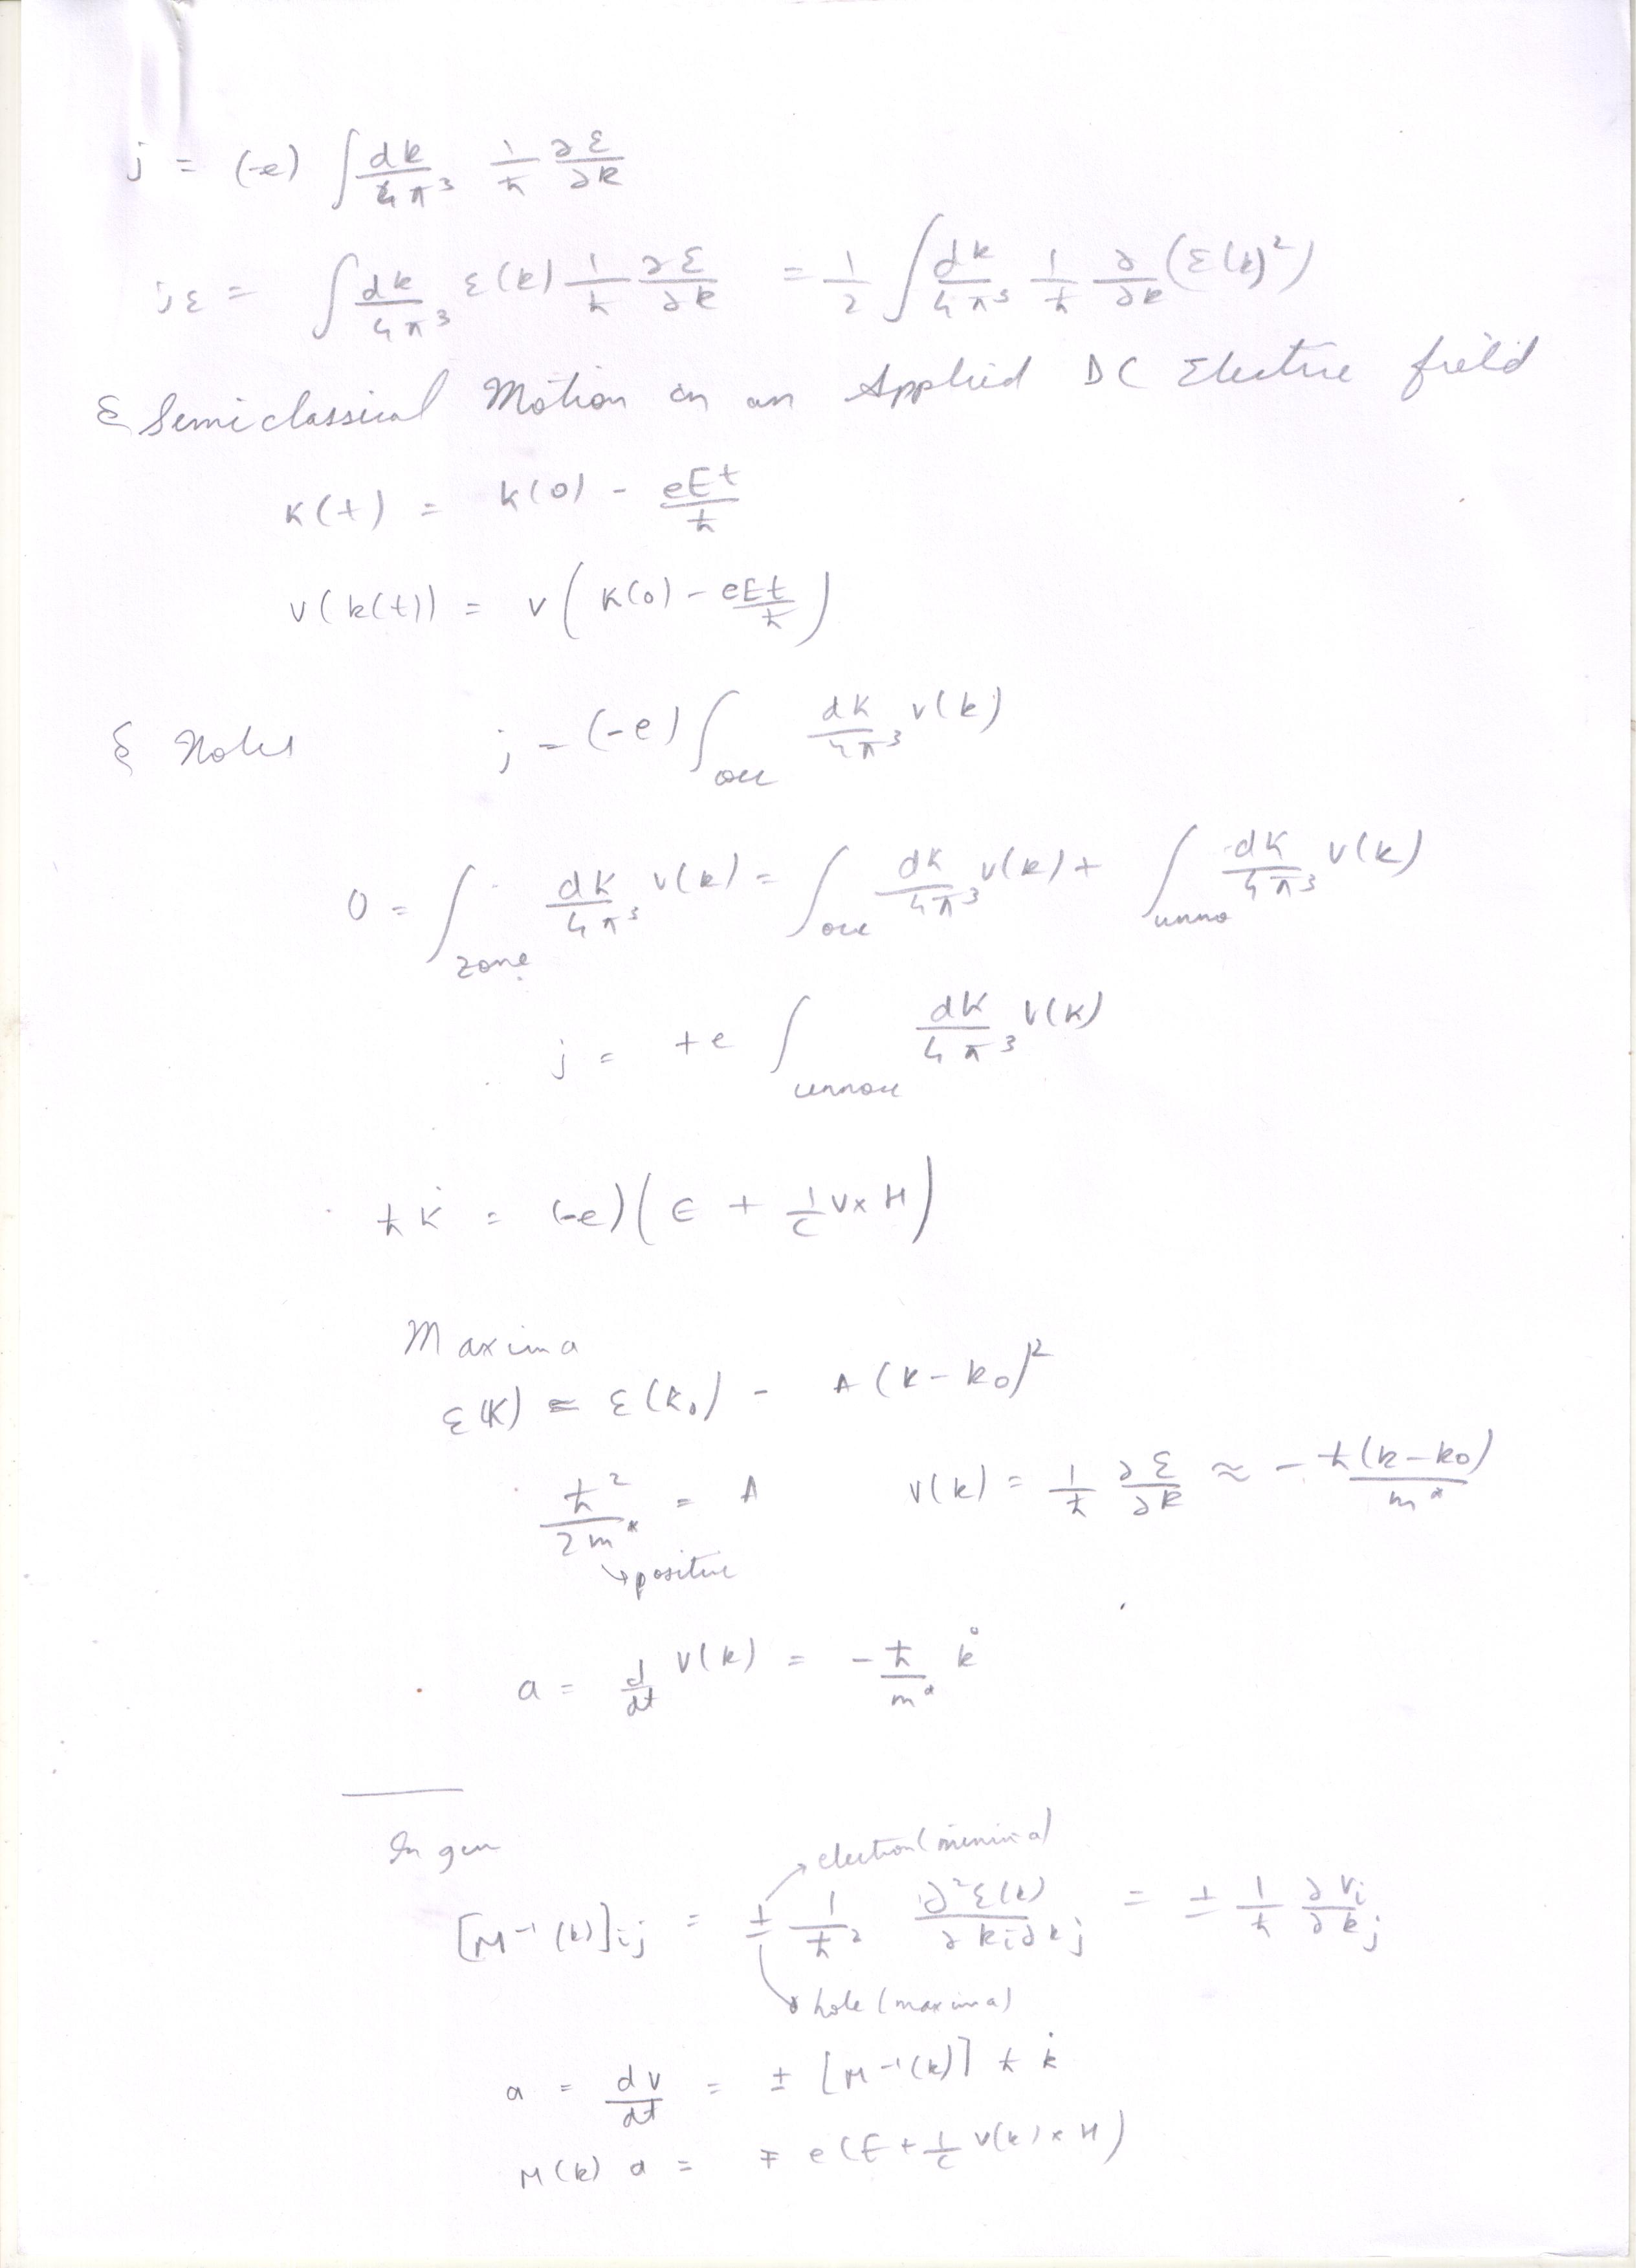 j = (-e) ∫ dk/4π³ 1/ħ ∂ε/∂k
jε = ∫ dk/4π³ ε(k) 1/ħ ∂ε/∂k = 1/2 ∫ dk/4π³ 1/ħ ∂/∂k (ε(k)²)
§ Semiclassical Motion in an Applied DC Electric field
k(t) = k(0) - eEt/ħ
v(k(t)) = v(k(0) - eEt/ħ)
§ Holes j = (-e) ∫occ dk/4π³ v(k)
0 = ∫zone dk/4π³ v(k) = ∫occ dk/4π³ v(k) + ∫unno dk/4π³ v(k)
j = +e ∫unnocc dk/4π³ v(k)
ħk̇ = (-e)(E + 1/c v×H)
Maxima
ε(k) = ε(k₀) - A(k-k₀)²
ħ²/2m* = A v(k) = 1/ħ ∂ε/∂k ≈ -ħ(k-k₀)/m*
↳positive
a = d/dt v(k) = -ħ/m* k̇
In gen
electron (minima)
[M⁻¹(k)]ij = ± 1/ħ² ∂²ε(k)/∂ki∂kj = ± 1/ħ ∂vi/∂kj
hole (maxima)
a = dv/dt = ± [M⁻¹(k)] ħ k̇
M(k) a = ∓ e(E + 1/c v(k)×H)